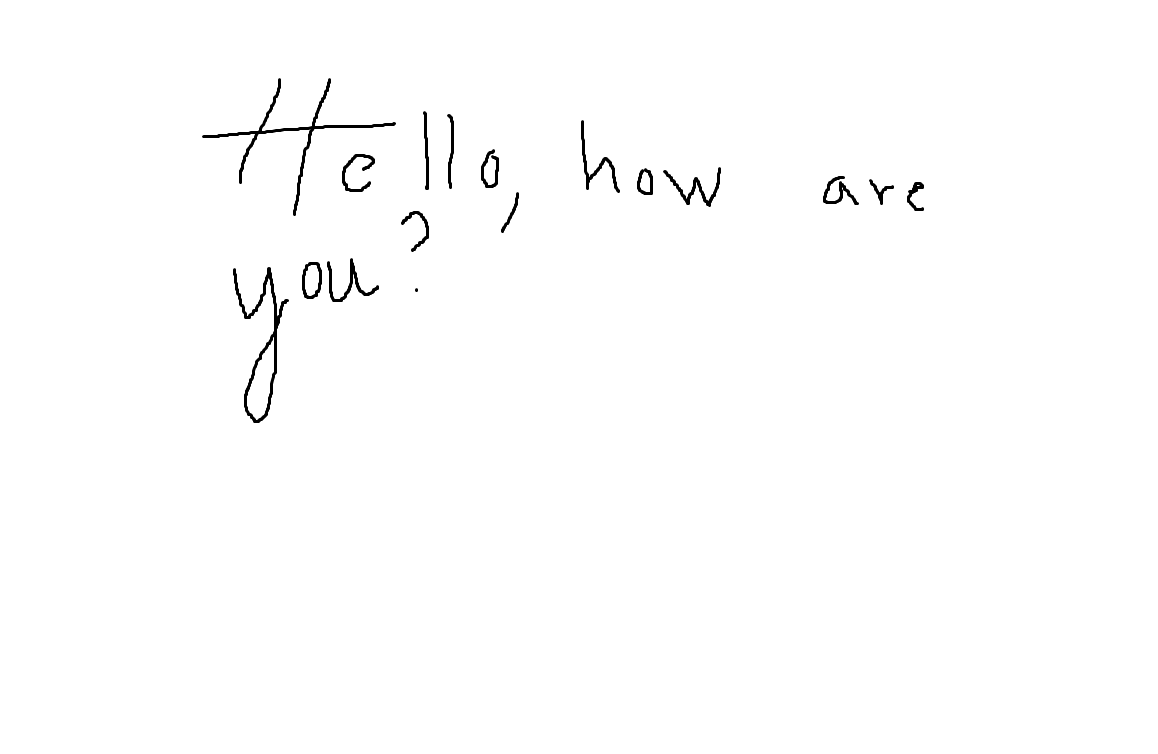 Hello, how are
you?